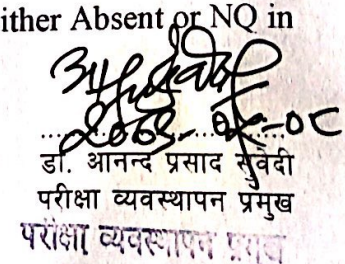 ither Absent or NQ in
डा. आनन्द प्रसाद सुवेदी
परीक्षा व्यवस्थापन प्रमुख
परीक्षा व्यवस्थापन प्रमुख